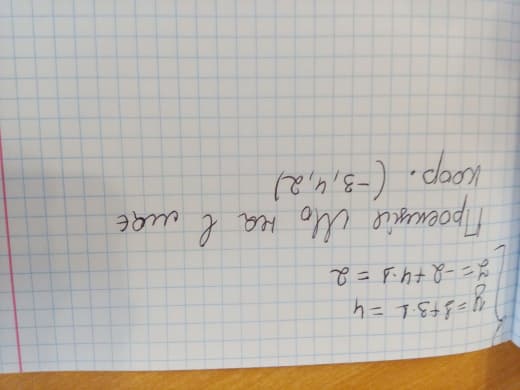 y=1+3·1=4
z=-2+4·1=2
Проекція M₀ на l має
коор. (-3,4,2)